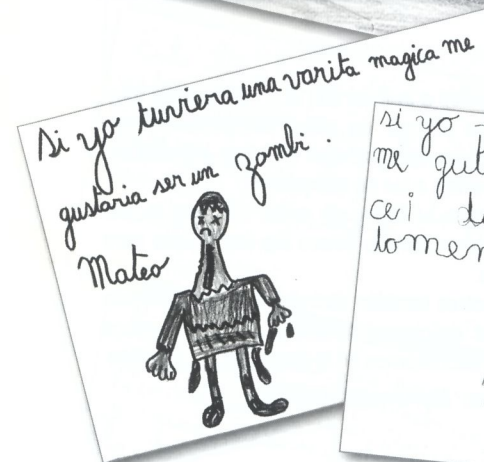 Si yo tuviera una varita magica me
gustaria ser un zombi .
Mateo
si yo
me gut
cei d
tomen